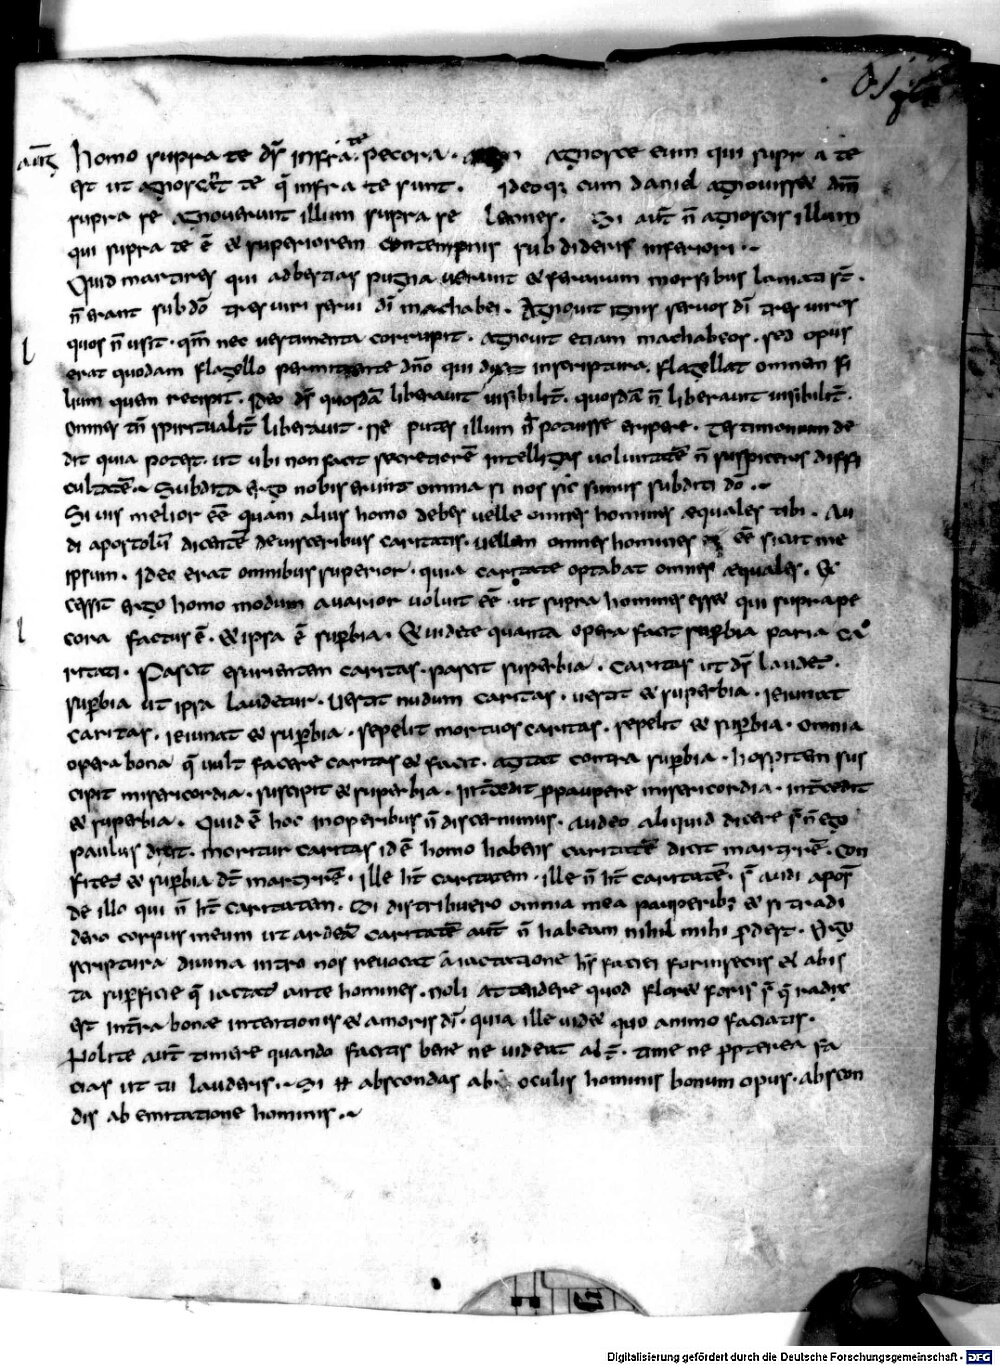 aug̅ homo supra te ds̅ infra te pecora. agnosce eum qui supra te
est ut agnoscant te q̅ infra te sunt. Ideoq; cum daniel agnouisset dm̅
supra se agnouerunt illum supra se leones. Si aut̅ n̅ agnoscis illum
qui supra te e̅ & superiorem contempnis subdideris inferiori.
Quid martires qui ad bestias pugnauerunt & ferarum morsibus laniati st̅.
n̅ erant sub do̅ tres uiri serui di̅ machabei. Agnouit ignis seruos di̅ tres uiros
quos n̅ usit. qm̅ nec uestimenta corrupit. agnouit etiam machabeos. sed opus
erat quodam flagello permittente dn̅o qui dixit inscriptura. flagellat omnem fi
lium quem recipit. Ideo ds̅ quosda̅ liberauit uisibilit̅. quosda̅ n̅ liberauit uisibilit̅.
omnes tn̅ spiritualit̅ liberauit. ne putes illum n̅ potuisse eripere. Testimonium de
dit quia potest. ut ubi non facit secretiore̅ intelligas uoluntate̅ n̅ suspiceris diffi
cultate̅. Subdita ergo nobis erunt omnia si nos sic simus subditi do̅.
Si uis melior ee̅ quam alius homo debes uelle omnes homines æquales tibi. Au
di apostolu̅ dicente̅ deuisceribus caritatis. uellem omnes homines ee̅ sicut me
ipsum. Ideo erat omnibus superior. quia caritate optabat omnes æquales. Ex
cessit ergo homo modum auarior uoluit ee̅. ut supra homines esset qui supra pe
cora factus e̅. & ipsa e̅ sup̅bia. & uidete quanta opera facit sup̅bia paria ca
ritati. Pascit esurientem caritas. pascit superbia. caritas ut ds̅ laudet.
sup̅bia ut ipsa laudetur. Uestit nudum caritas. uestit & superbia. Ieiunat
caritas. Ieiunat & sup̅bia. sepelit mortuos caritas. sepelit & sup̅bia. omnia
opera bona q̅ uult facere caritas & facit. agitat contra sup̅bia. hospitem sus
cipit misericordia. suscipit & superbia. Int̅cedit p̅paupere misericordia. int̅cedit
& superbia. Quid e̅ hoc inoperibus n̅ discernimus. audeo aliquid dicere s̅ n̅ ego
paulus dicit. moritur caritas id e̅ homo habens caritate̅ dicit martyre̅. con
fitet̅ & sup̅bia dt̅ martyre̅. ille ht̅ caritatem. ille n̅ ht̅ caritate̅. s̅ audi apos̅
de illo qui n̅ ht̅ caritatem. Si distribuero omnia mea pauperib; & si tradi
dero corpus meum ut ardea̅ caritate̅ aut̅ n̅ habeam nihil mihi p̅dest. Ergo
scriptura diuina intro nos reuocat a̅ iactatione hs̅ faciei forinsecus & ab is
ta sup̅ficie q̅ iactat̅ ante homines. noli attendere quod floret foris s̅ q̅ radix
est int̅ra bonæ intentionis & amoris di̅. quia ille uidet quo animo faciatis.
Nolite aut̅ timere quando facitis bene ne uideat alt̅. time ne p̅pterea fa
cias ut tu lauderis. Si abscondas ab oculis hominis bonum opus. abscon
dis ab emitatione hominis.
Digitalisierung gefördert durch die Deutsche Forschungsgemeinschaft - DFG